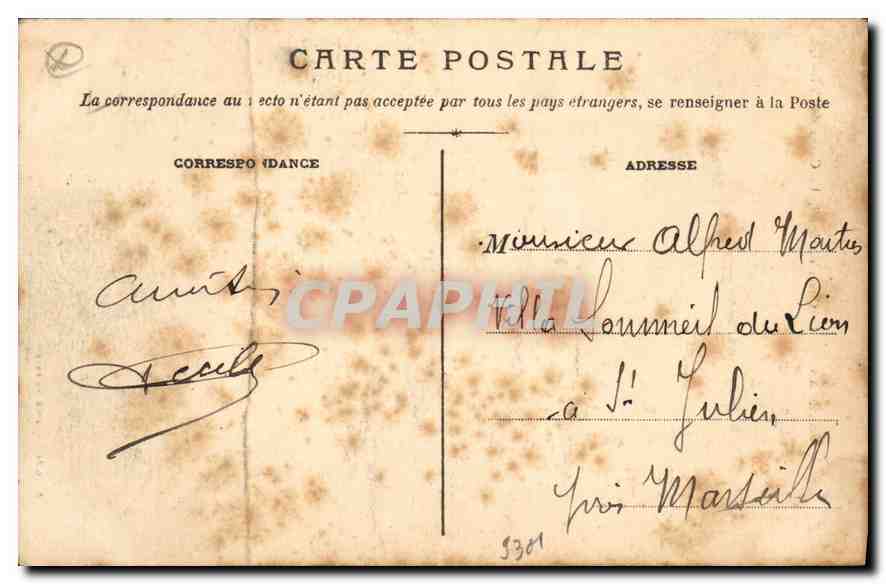 CARTE POSTALE
La correspondance au recto n'étant pas acceptée par tous les pays étrangers, se renseigner à la Poste
CORRESPONDANCE
ADRESSE
Monsieur Alfred Martres
Villa Sommeil du Lion
à St Julien
près Marseille
Amitiés
CPAPHIL
9301